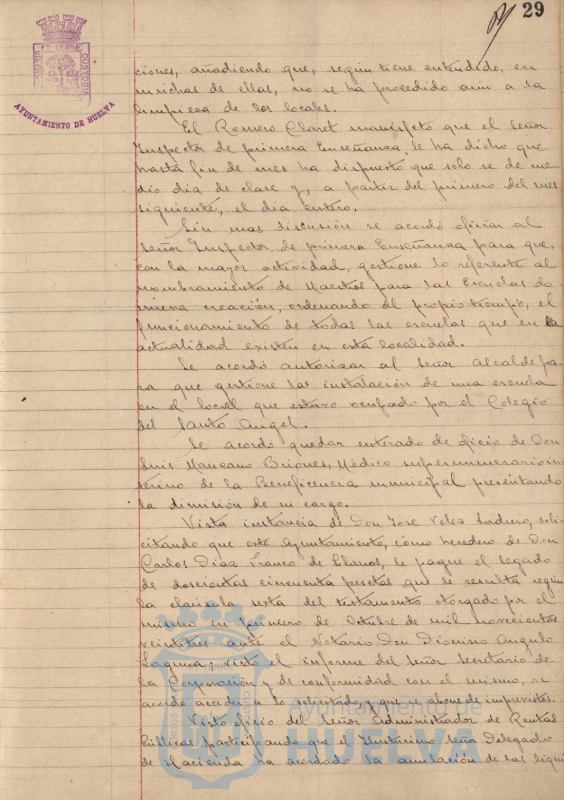 29
AYUNTAMIENTO DE HUELVA
ciones, añadiendo que, según tiene entendido, en
muchas de ellas, no se ha procedido aun a la
limpieza de los locales.
El Romero Claret manifestó que el Señor
Inspector de primera Enseñanza le ha dicho que
hasta fin de mes ha dispuesto que solo se de me-
dio dia de clase y, a partir del primero del mes
siguiente, el dia entero.
Sin mas discusión se acordó oficiar al
Señor Inspector de primera Enseñanza para que,
con la mayor actividad, gestione lo referente al
nombramiento de Maestros para las Escuelas de
nueva creación, ordenando al propio tiempo, el
funcionamiento de todas las escuelas que en la
actualidad existen en esta localidad.
Se acordó autorizar al Señor Alcalde pa-
ra que gestione la instalación de una escuela
en el local que estuvo ocupado por el Colegio
del Santo Angel.
Se acordo quedar enterado de oficio de Don
Luis Manzano Briones, Médico supernumerario in-
terino de la Beneficencia municipal presentando
la dimisión de su cargo.
Vista instancia de Don Jose Velez, soli-
citando que este Ayuntamiento, como heredero de Don
Carlos Diaz Franco de Llanos, le pague el legado
de doscientas cincuenta pesetas que le resulta según
la clausula sexta del testamento otorgado por el
mismo en primero de Octubre de mil novecientos
veintitres ante el Notario Don Dionisio Angulo
Laguna; visto el informe del Señor Secretario de
la Corporación y de conformidad con el mismo, se
acordó acceder a lo solicitado, y que se abone de imprevistos.
Visto oficio del Señor Administrador de Rentas
Públicas participando que el Ilustrisimo Señor Delegado
de Hacienda ha acordado la anulación de las liqui
Ayuntamiento de
HUELVA